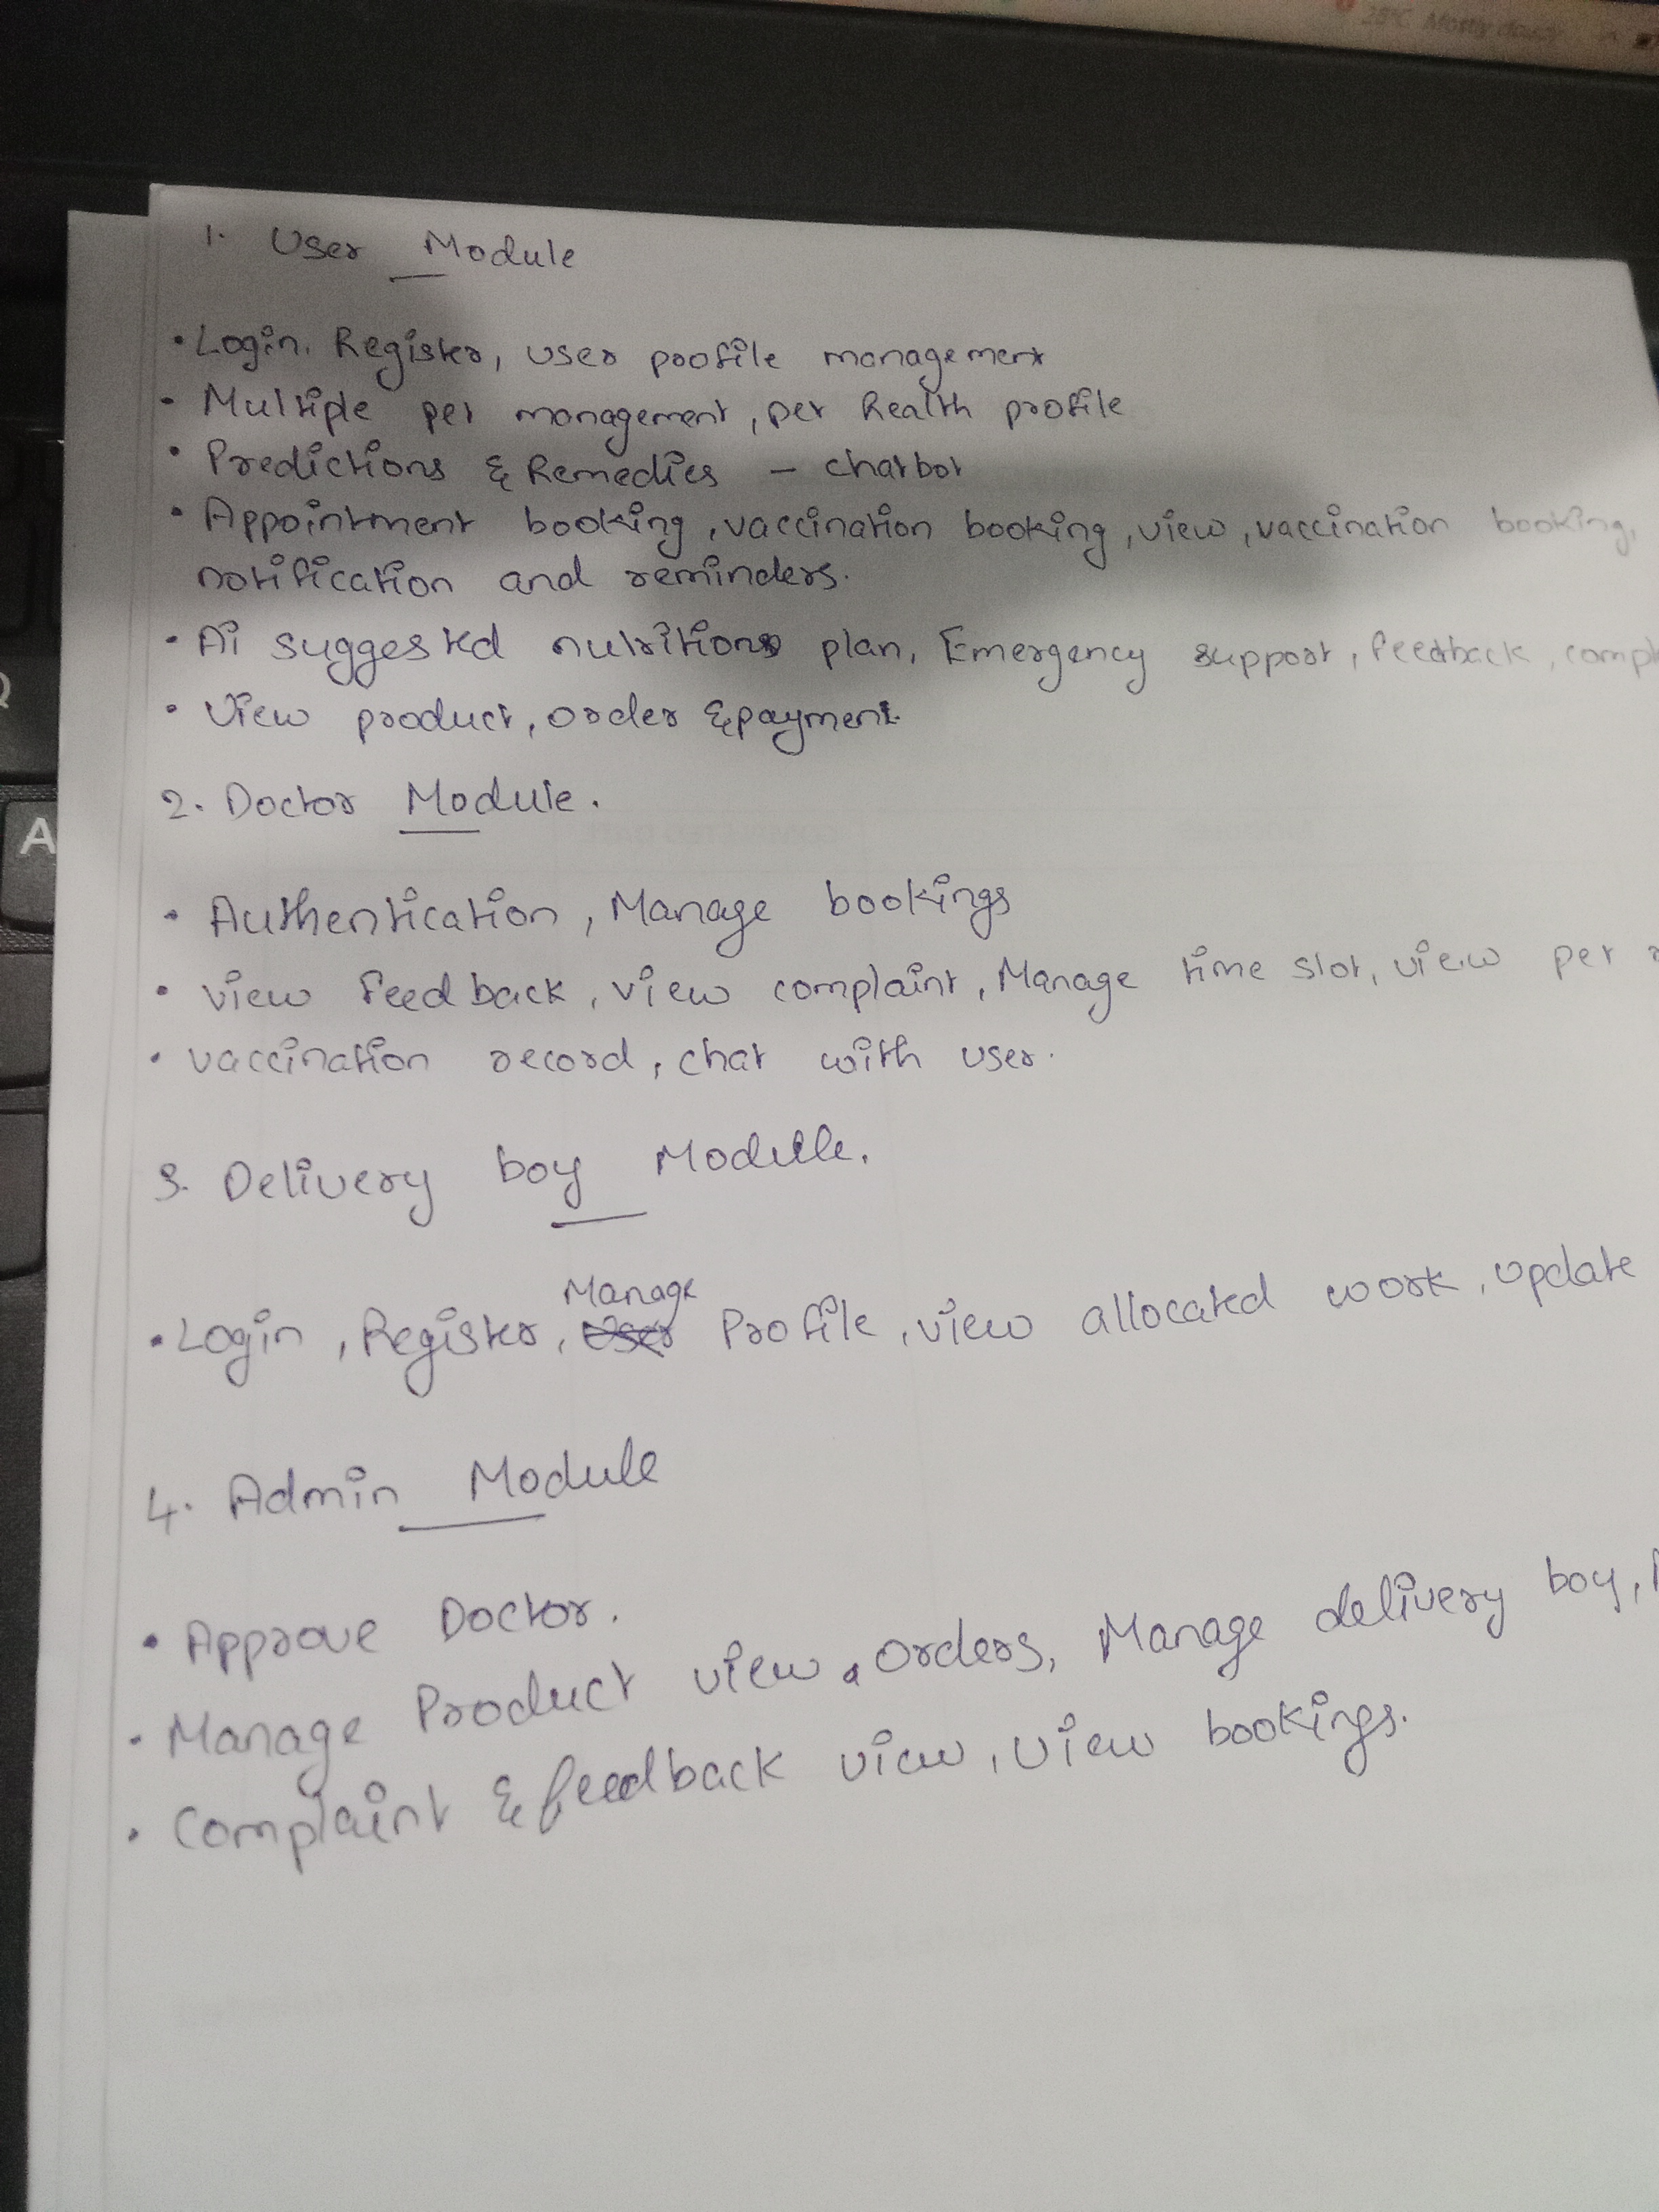 28°C Mostly cloudy
1. User Module
• Login, Register, user profile management
• Multiple pet management, pet health profile
• Predictions & Remedies - chatbot
• Appointment booking, vaccination booking, view, vaccination booking,
notification and reminders.
• Ai suggested nutrition plan, Emergency support, feedback,
• View product, order & payment.
2. Doctor Module.
• Authentication, Manage bookings
• view feedback, view complaint, Manage time slot, view pet
• vaccination record, chat with user.
3. Delivery boy Module.
Manage
• Login, Register, Profile, view allocated work, update
4. Admin Module
• Approve Doctor.
• Manage Product view, orders, Manage delivery boy,
• Complaint & feedback view, view bookings.
A